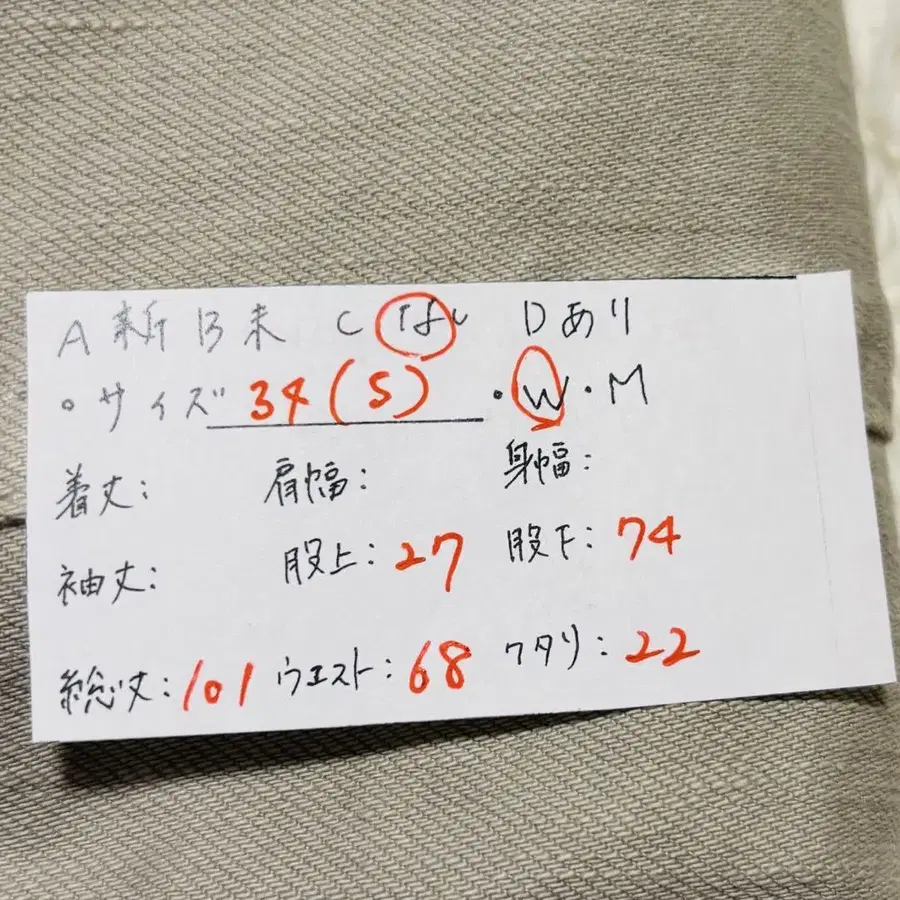 A 新 B 未 C なし D あり
。サイズ 34(S) ・W・M
着丈: 肩幅: 身幅:
袖丈: 股上:27 股下:74
総丈:101 ウエスト:68 ワタリ:22